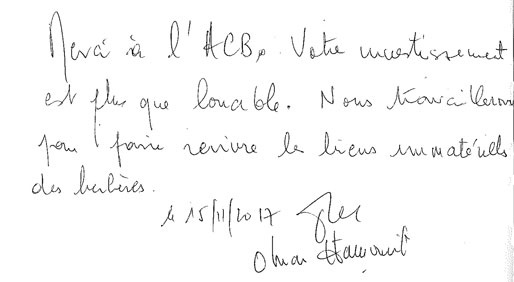 Merci à l'ACB. Votre investissement
est plus que louable. Nous travaillerons
pour faire revivre les biens immatériels
des berbères.
le 15/11/2017
Omar